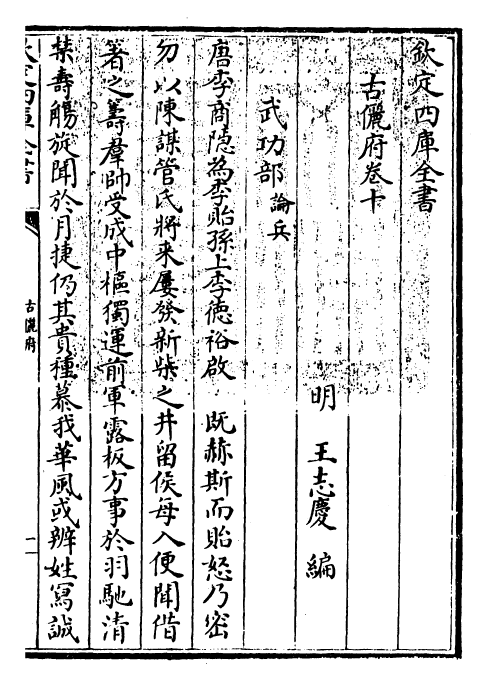 欽定四庫全書
古儷府卷十
明　王志慶　編
武功部 論兵
唐李商隱為李貽孫上李徳裕啟　既赫斯而貽怒乃密
勿以陳謀管氏將来屢發新柴之井留侯每入便聞借
箸之籌羣帥受成中樞獨運前軍露板方事於羽馳清
禁壽觴旋聞於月捷仍其貴種慕我華風或辨姓寫誠
古儷府